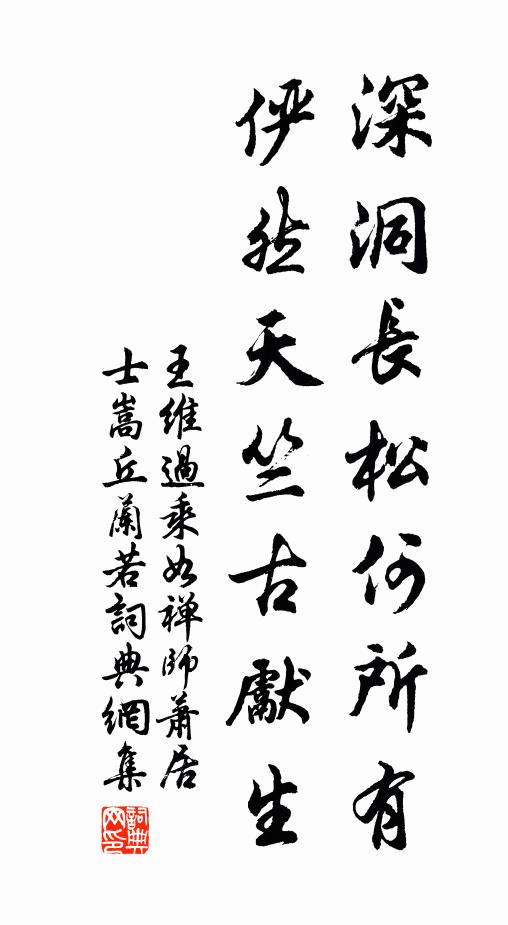 深洞長松何所有
俨然天竺古獻生
王維過乘如禅師蕭居
士嵩丘蘭若詞典網集
詞典
网印